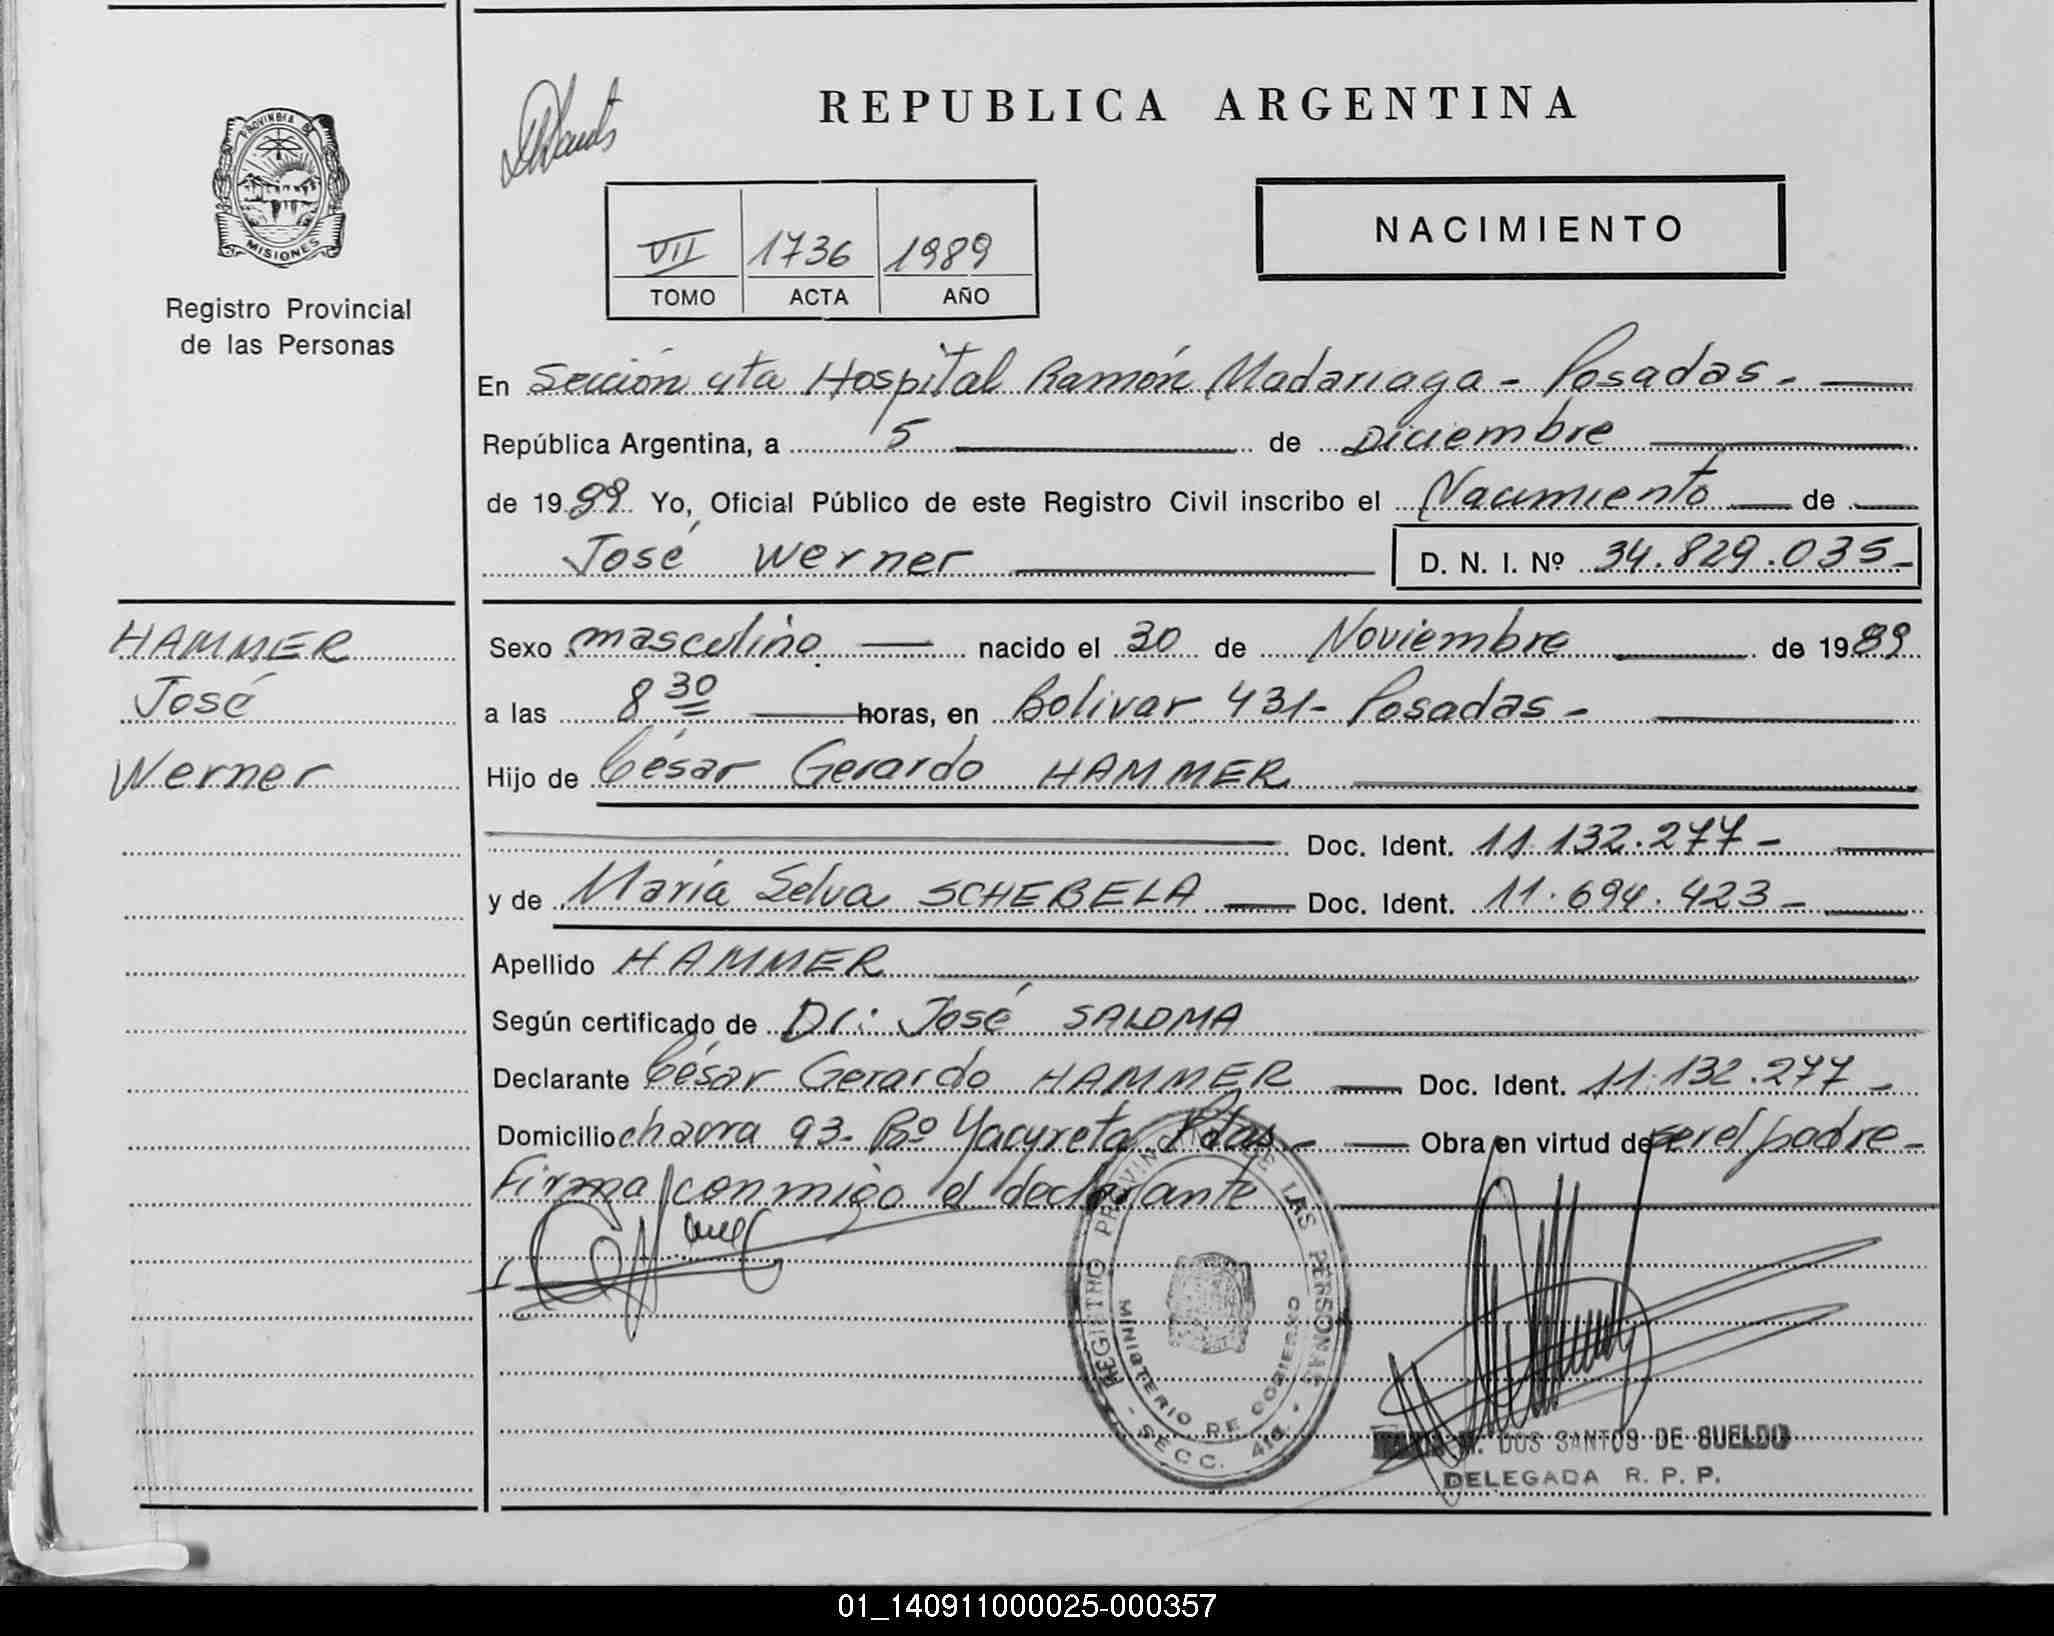 REPUBLICA ARGENTINA
PROVINCIA DE
MISIONES
Registro Provincial
de las Personas
VII 1736 1989
TOMO ACTA AÑO
NACIMIENTO
En Sección 4ta Hospital Ramón Madariaga - Posadas.
República Argentina, a 5 de Diciembre
de 1989. Yo, Oficial Público de este Registro Civil inscribo el Nacimiento de
José Werner D. N. I. Nº 34.829.035-
HAMMER
José
Werner
Sexo masculino nacido el 30 de Noviembre de 1989
a las 8 30 horas, en Bolivar 431- Posadas -
Hijo de César Gerardo HAMMER
Doc. Ident. 11.132.277-
y de María Selva SCHEBELA Doc. Ident. 11.694.423-
Apellido HAMMER
Según certificado de Dr: José SALOMA
Declarante César Gerardo HAMMER Doc. Ident. 11.132.277-
Domicilio chacra 93- Bº Yacyreta Pdas - Obra en virtud de ser el padre-
Firma conmigo el declarante
REGISTRO PROVINCIAL DE LAS PERSONAS
MINISTERIO DE GOBIERNO
- SECC. 4ta. -
M. DOS SANTOS DE SUELDO
DELEGADA R. P. P.
01_140911000025-000357